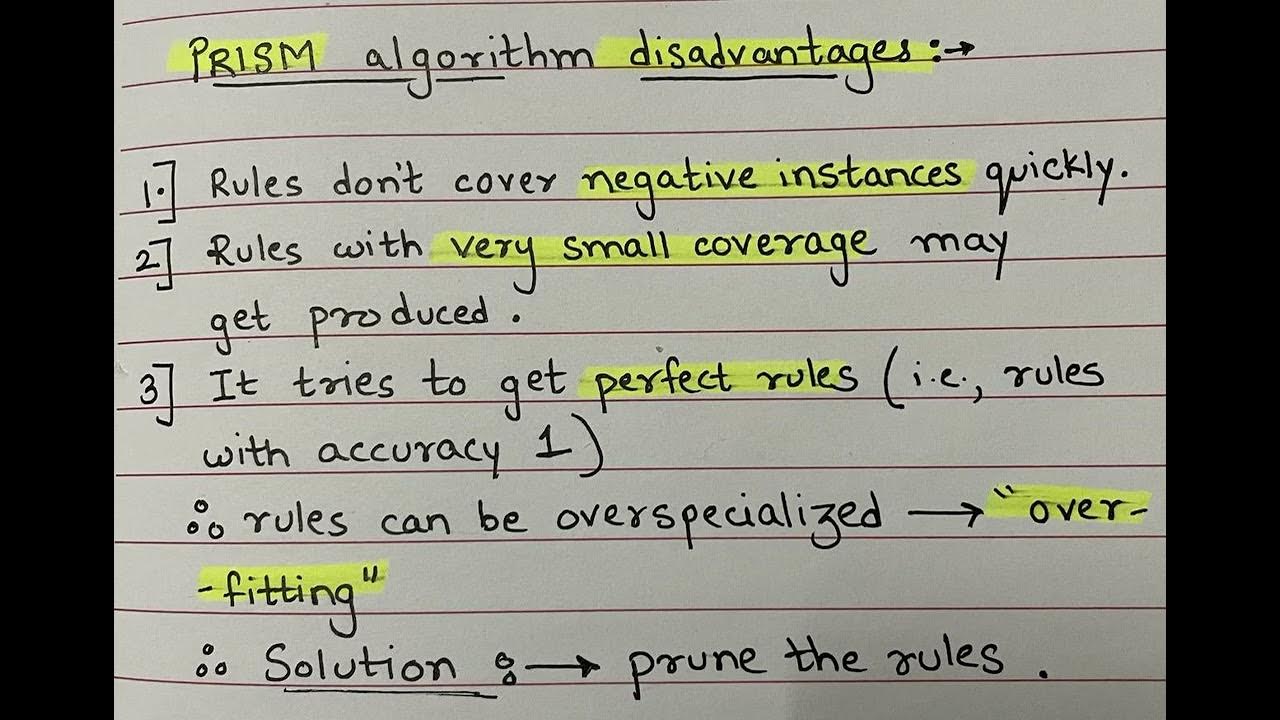 PRISM algorithm disadvantages :→
1.] Rules don't cover negative instances quickly.
2] Rules with very small coverage may
get produced .
3] It tries to get perfect rules (i.e., rules
with accuracy 1)
∴ rules can be overspecialized → "over-
-fitting"
∴ Solution :→ prune the rules .